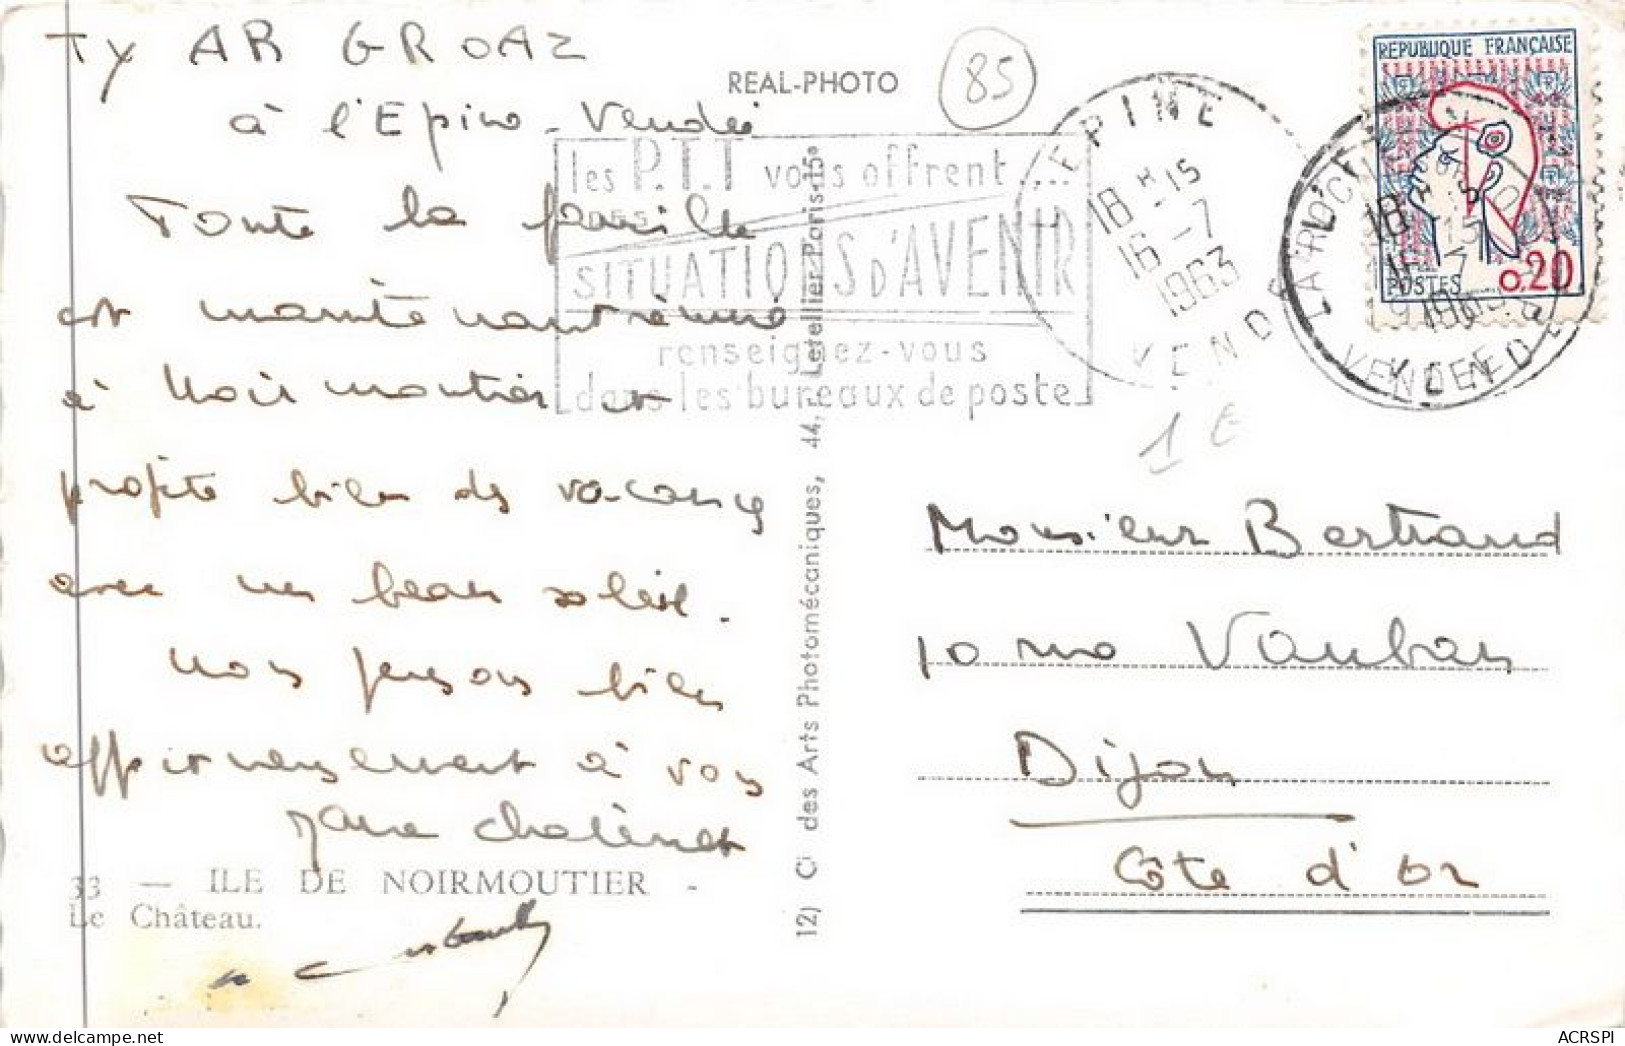 TY AR GROAZ
à l'Epine - Vendée
Toute la famille
est maintenant réunie
à Noirmoutier et
profite bien des vacances
avec un beau soleil.
Nos pensons bien
affectueusement à vous
33 — ILE DE NOIRMOUTIER -
Le Château.
REAL-PHOTO
85
les P.T.T vous offrent...
DES
SITUATIONS D'AVENIR
renseignez-vous
dans les bureaux de poste
EPINE
18 H -15
16 -7
1963
VENDEE
REPUBLIQUE FRANÇAISE
POSTES 0,20
LA ROCHE
VENDEE
1 €
des Arts Photomécaniques, 44, r. Letellier Paris-15e
Monsieur Bertrand
10 rue Vauban
Dijon
Côte d'or
ACRSPI